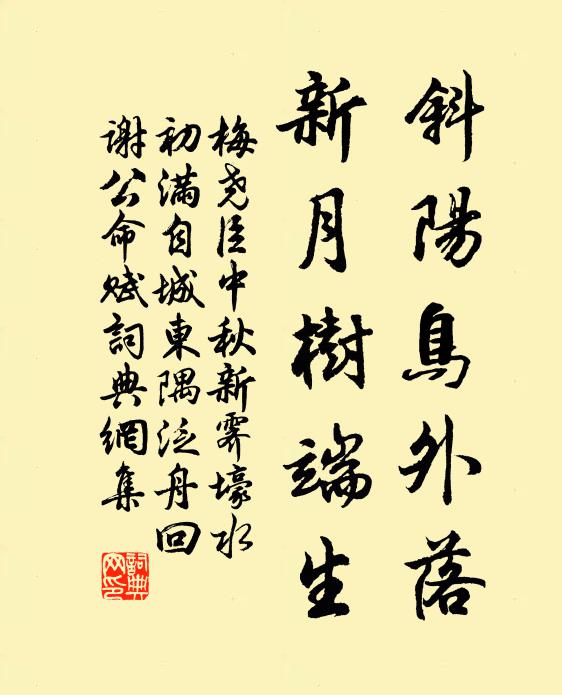 斜陽鳥外落
新月樹端生
梅堯臣中秋新霽壕水
初滿自城東隅泛舟回
謝公命賦詞典網集
詞典
网印